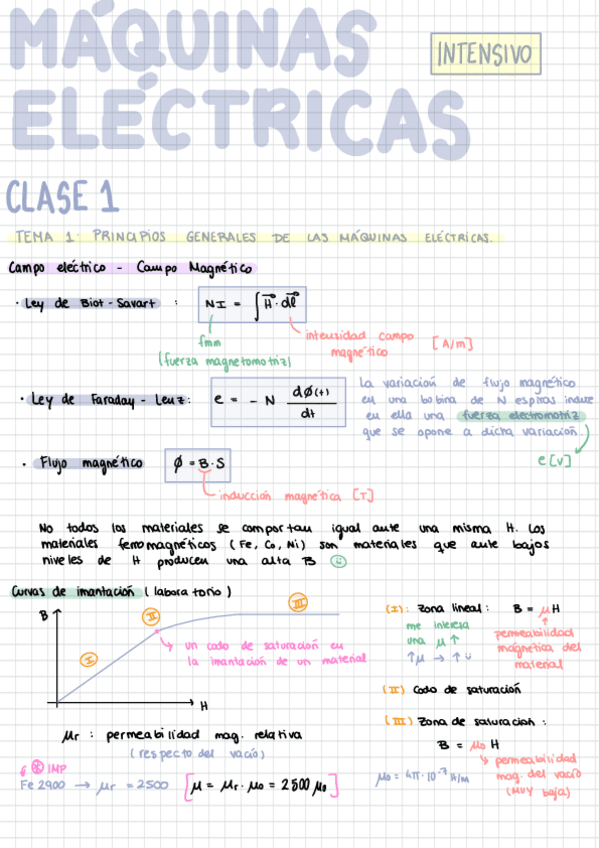 MÁQUINAS
ELÉCTRICAS
INTENSIVO
CLASE 1
TEMA 1: PRINCIPIOS GENERALES DE LAS MÁQUINAS ELÉCTRICAS.
Campo eléctrico - Campo Magnético
· Ley de Biot-Savart : NI = ∫ H⃗ · dl⃗
fmm
(fuerza magnetomotriz)
intensidad campo
magnético [A/m]
· Ley de Faraday - Lenz: e = - N dϕ(t)/dt
La variación de flujo magnético
en una bobina de N espiras induce
en ella una fuerza electromotriz
que se opone a dicha variación.
e [V]
· Flujo magnético ϕ = B·S
inducción magnética [T]
No todos los materiales se comportan igual ante una misma H. Los
materiales ferromagnéticos (Fe, Co, Ni) son materiales que ante bajos
niveles de H producen una alta B
Curvas de imantación (laboratorio)
B
I
II
III
H
un codo de saturación en
la imantación de un material
(I): Zona lineal: B = μH
me interesa
una μ↑
permeabilidad
magnética del
material
(II) Codo de saturación
(III) Zona de saturación:
B = μ₀ H
permeabilidad
mag. del vacío
(MUY baja)
μ₀ = 4π·10⁻⁷ H/m
μr : permeabilidad mag. relativa
(respecto del vacío)
IMP
Fe 2900 → μr = 2500 [μ = μr·μ₀ = 2500 μ₀]